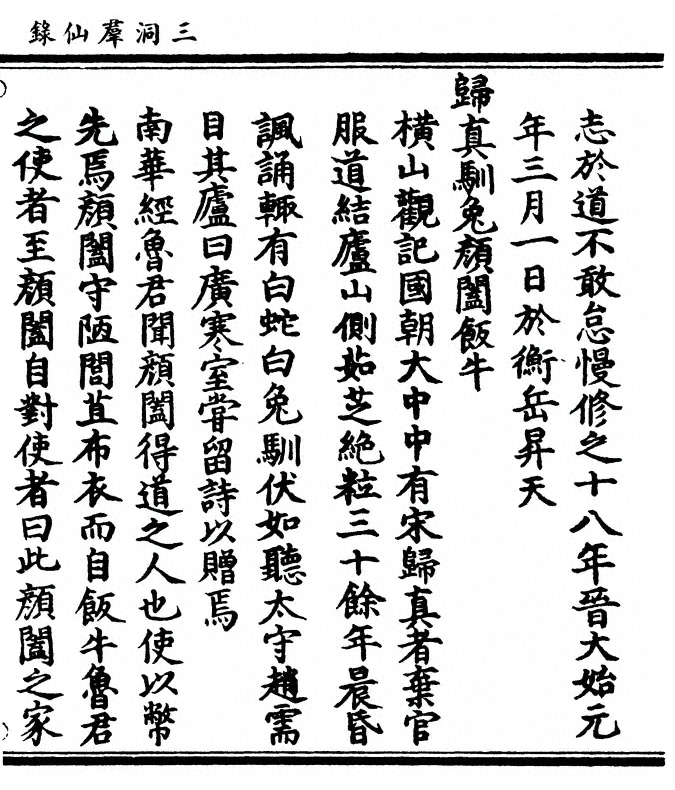 三洞羣仙錄
志於道不敢怠慢修之十八年晉大始元
年三月一日於衡岳昇天
歸真馴兔顏闔飯牛
橫山觀記國朝大中中有宋歸真者棄官
服道結廬山側茹芝絶粒三十餘年晨昏
諷誦輙有白蛇白兔馴伏如聽太守趙需
目其廬曰廣寒室甞留詩以贈焉
南華經魯君聞顏闔得道之人也使以幣
先焉顏闔守陋閭苴布衣而自飯牛魯君
之使者至顏闔自對使者曰此顏闔之家